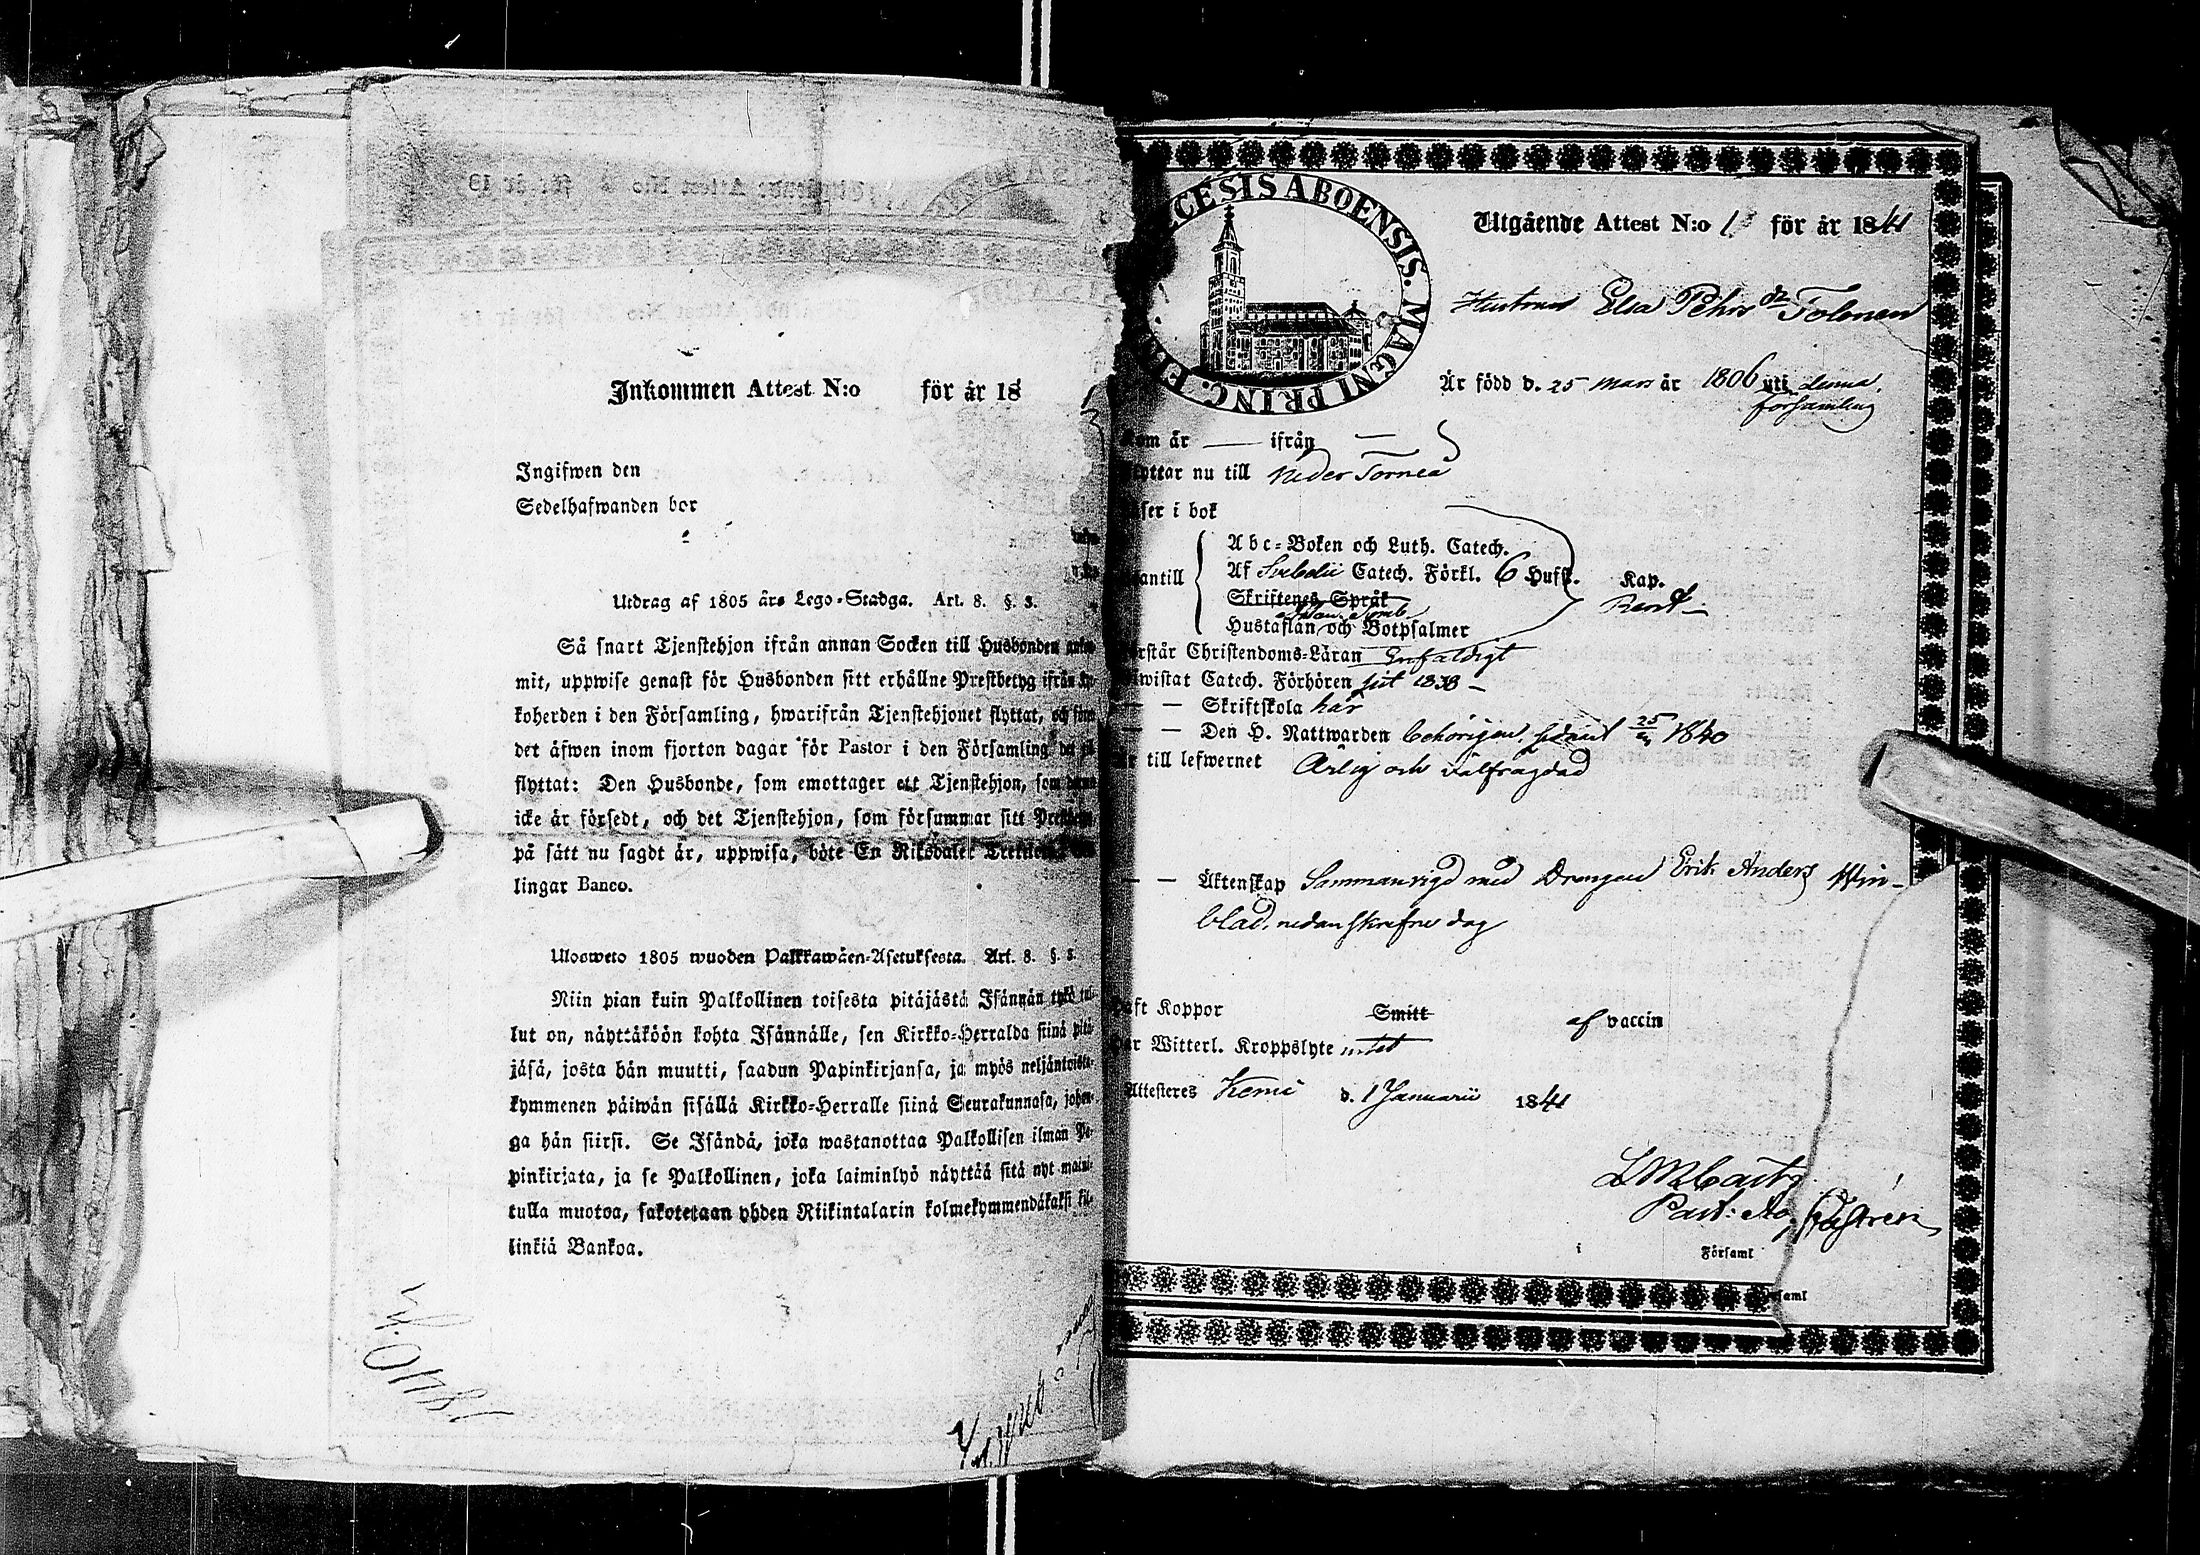 Inkommen Attest N:o för år 18
Ingifwen den
Sedelhafwanden bor
Utdrag af 1805 års Lego-Stadga. Art. 8. §. 3.
Så snart Tjenstehjon ifrån annan Socken till Husbonden
mit, uppwise genast för Husbonden sitt erhållne Prestbetyg ifrån
koherden i den Församling, hwarifrån Tjenstehjonet flyttat, och
det äfwen inom fjorton dagar för Pastor i den Församling
flyttat: Den Husbonde, som emottager ett Tjenstehjon, som
icke är försedt, och det Tjenstehjon, som försummar sitt
på sätt nu sagdt är, uppwisa, böte En Riksdaler
lingar Banco.
Ulosweto 1805 wuoden Palkkawäen-Asetuksesta. Art. 8. §. 3.
Niin pian kuin Palkollinen toisesta pitäjästä Isännän tykö tul-
lut on, näyttäköön kohta Isännälle, sen Kirkko-Herralda siinä pitä-
jäsä, josta hän muutti, saadun Papinkirjansa, ja myös neljäntoista-
kymmenen päiwän sisällä Kirkko-Herralle siinä Seurakunnasa, johon-
ga hän siirsi. Se Isändä, joka wastanottaa Palkollisen ilman Pa-
pinkirjata, ja se Palkollinen, joka laiminlyö näyttää sitä nyt maini-
tulla muotoa, sakotetaan yhden Riikintalarin kolmekymmendäkaksi kil-
linkiä Bankoa.
CESIS ABOENSIS. MAGNI PRINC.
Utgående Attest N:o 1 för år 1841
Hustrun Elsa Pehrs dr Tolonen
Är född d. 25 Mars år 1806 uti denna
församling
år — ifrån —
nu till Neder Torneå
i bok
Abc-Boken och Luth. Catech.
antill Af Svebelii Catech. Förkl. 6 Hufst. Kap.
Skriftenes Språk
Hustaflan och Botpsalmer
Christendoms-Läran Enfaldigt
Catech. Förhören sist 1838 —
— Skriftskola här
— Den H. Nattwarden behörigen, sednast 25 1840
till lefwernet Ärlig och välfrägdad
— — Äktenskap Sammanvigd med Drängen Erik Anders Win-
blad, nedanskrefne dag
Koppor Smitt af vaccin
Witterl. Kroppslyte intet
Attesteres Kemi d. 1 Januarii 1841
Castrén
Församl